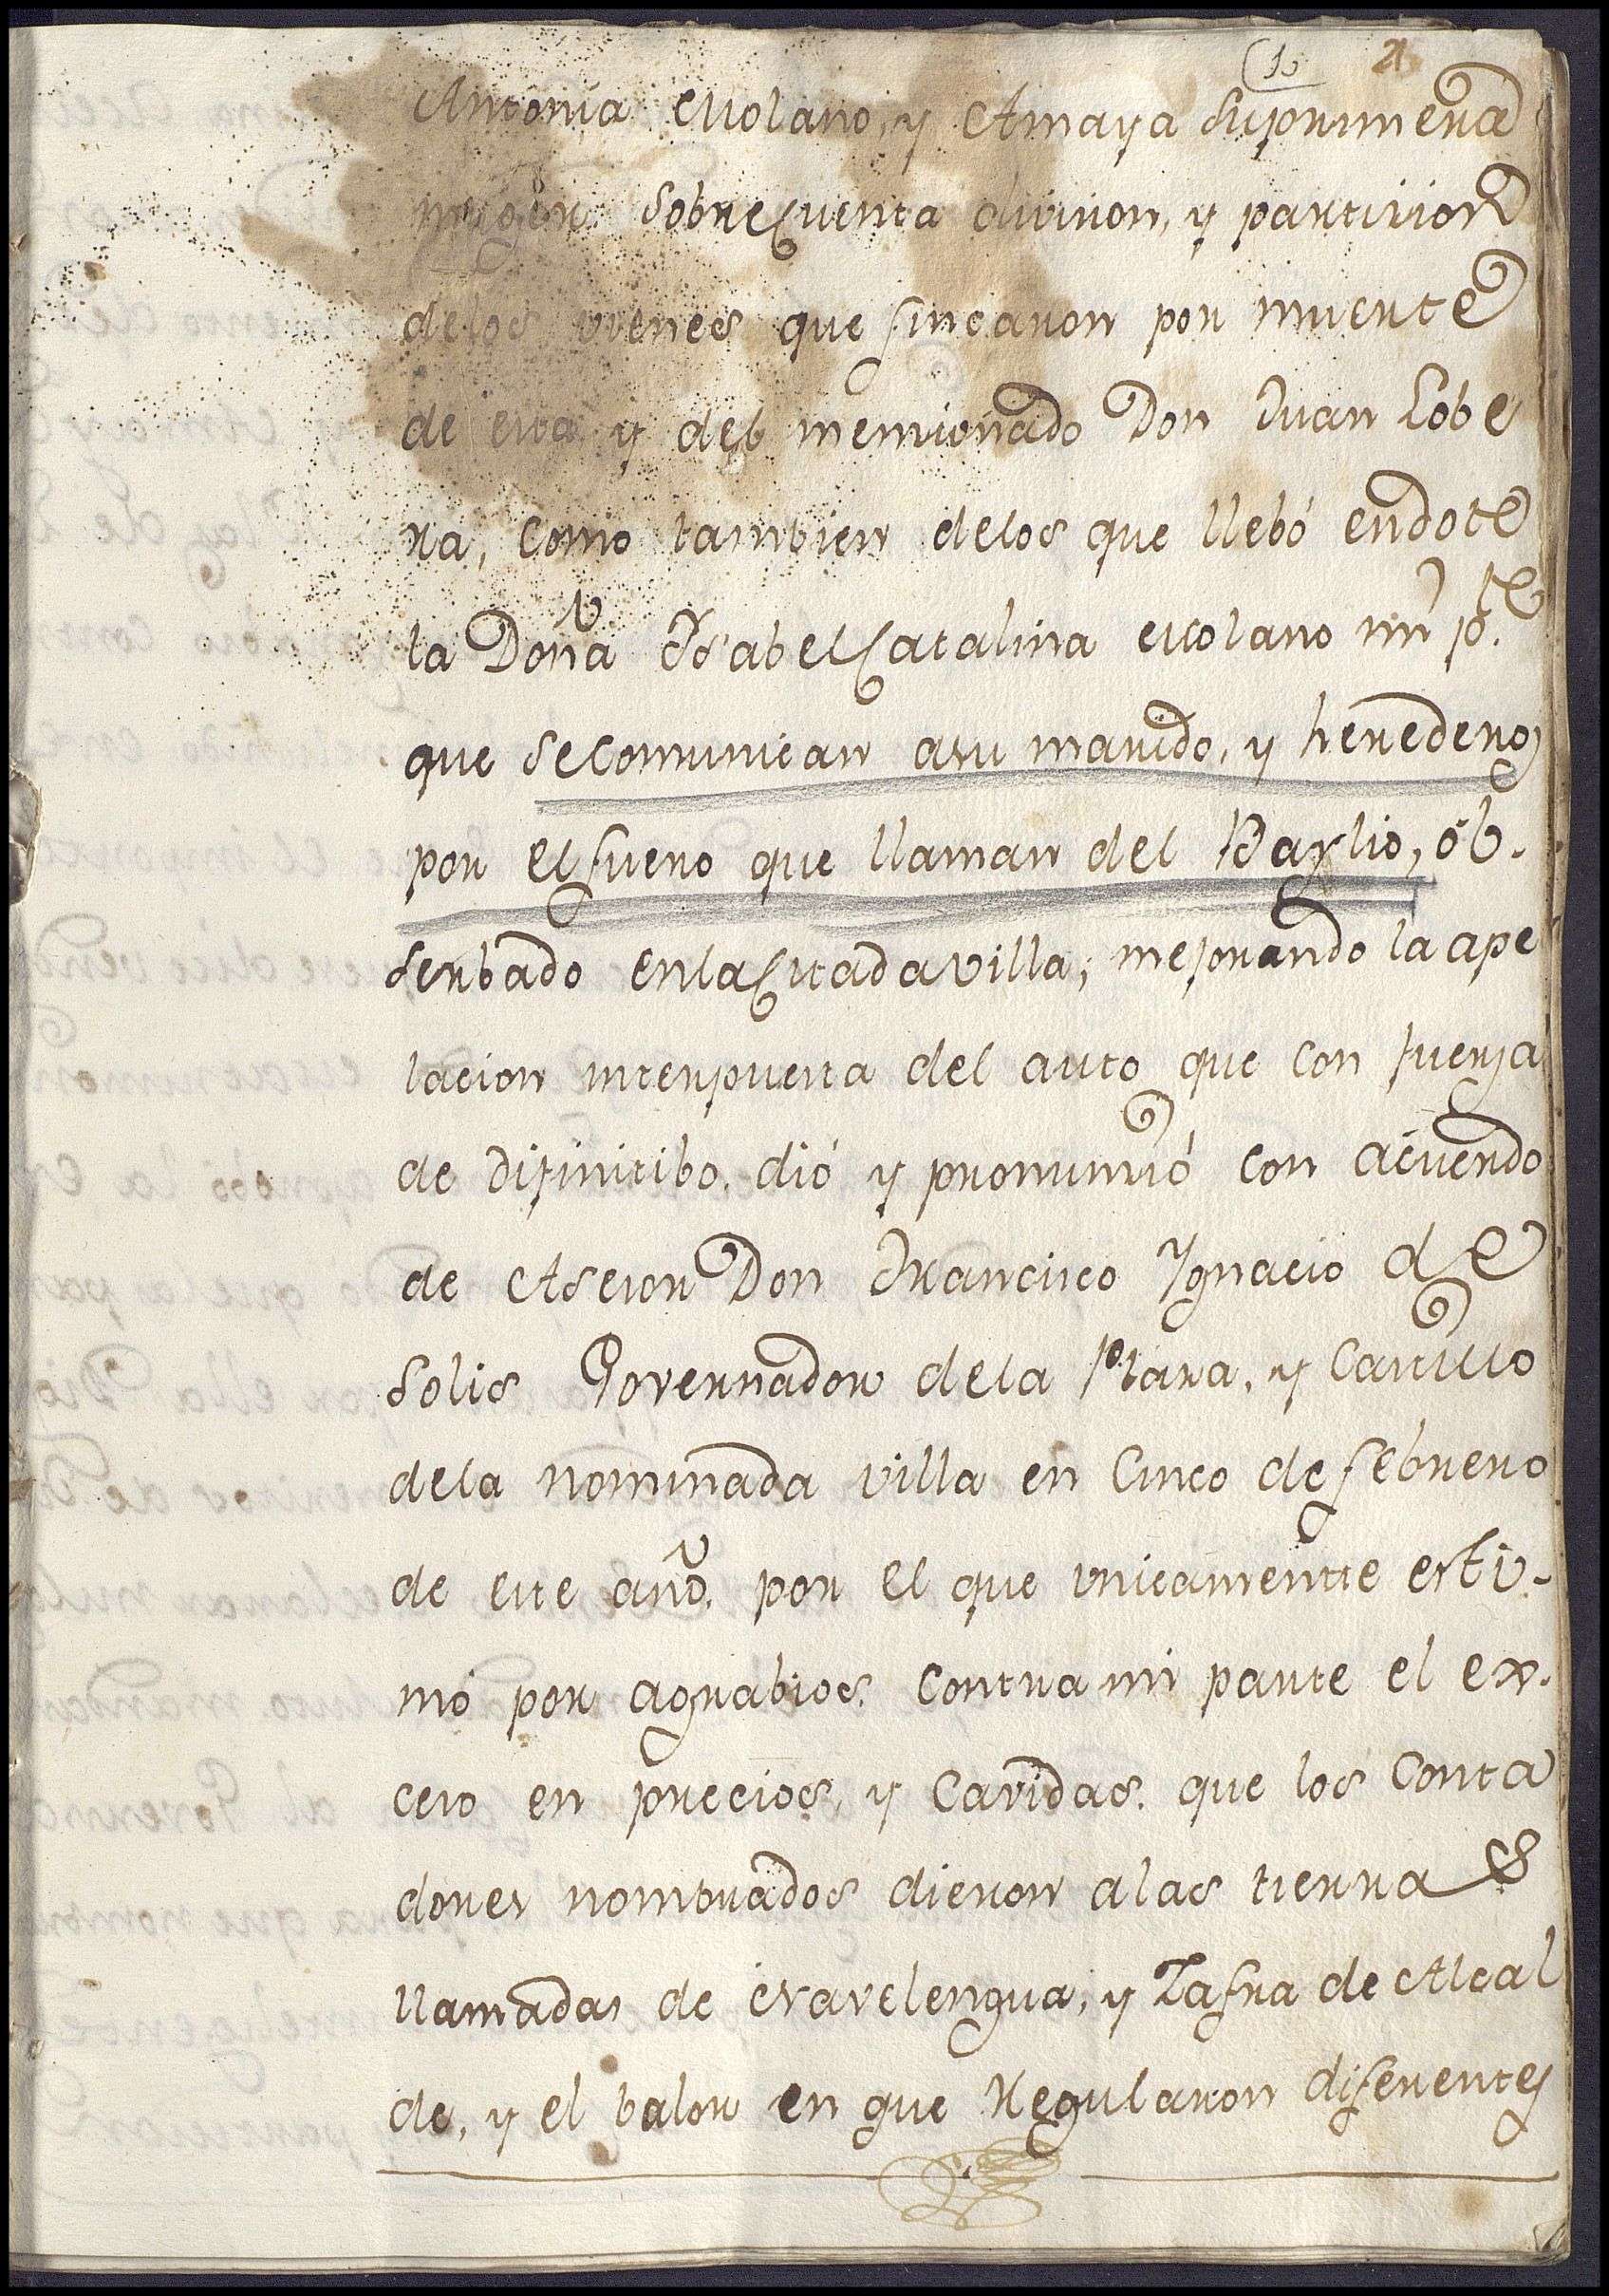 10 21
Antonia Molano, y Amaya su primera
muger sobre Cuenta division, y partision
de los vienes que fincaron por muerte
de esta y del mensionado Don Juan Lobe
ra, como tambien delos que llebó endote
la Doña Ysabel Catalina Molano mi p.te
que se comunican asu marido, y heredero,
por el fuero que llaman del Baylio, ob-
serbado en la Citada villa; mejorando la ape
lacion interpuesta del auto que con fuerza
de difinitibo, dió y pronunsió con acuerdo
de Asesor Don Francisco Ygnacio de
Solis Governador dela Plasa, y Castillo
dela nominada villa en Cinco de febrero
de este año, por el que unicamentte esti-
mó por agrabios contra mi parte el ex-
ceso en precios, y Cavidas que los Conta
dores nombrados dieron alas tierras
llamadas de Cravelengua, y Zafra de Alcal
de, y el balor en que Regularon diferentes